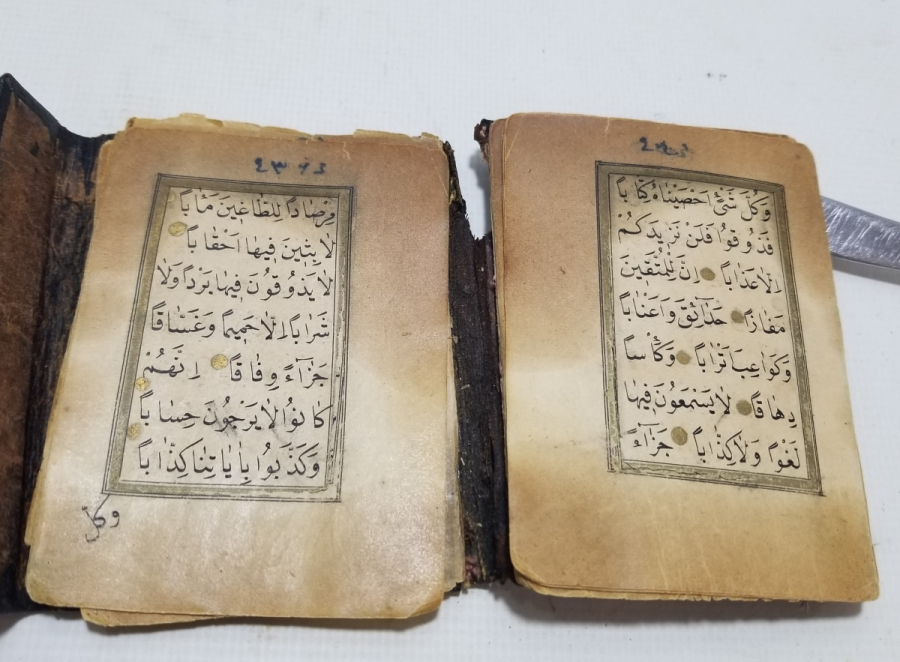 مِرْصَاداً لِلطَّاغِينَ مَاٰباً
لَابِثِينَ فِيهَا اَحْقَاباً
لَا يَذُوقُونَ فِيهَا بَرْداً وَلَا
شَرَاباً اِلَّا حَمِيماً وَغَسَّاقاً
جَزَآءً وِفَاقاً اِنَّهُمْ
كَانُوا لَا يَرْجُونَ حِسَاباً
وَكَذَّبُوا بِاٰيَاتِنَا كِذَّاباً
وكل
وَكُلَّ شَیْءٍ اَحْصَيْنَاهُ كِتَاباً
فَذُوقُوا فَلَنْ نَزِيدَكُمْ
اِلَّا عَذَاباً اِنَّ لِلْمُتَّقِينَ
مَفَازاً حَدَآئِقَ وَاَعْنَاباً
وَكَوَاعِبَ اَتْرَاباً وَكَأْساً
دِهَاقاً لَا يَسْمَعُونَ فِيهَا
لَغْواً وَلَا كِذَّاباً جَزَآءً